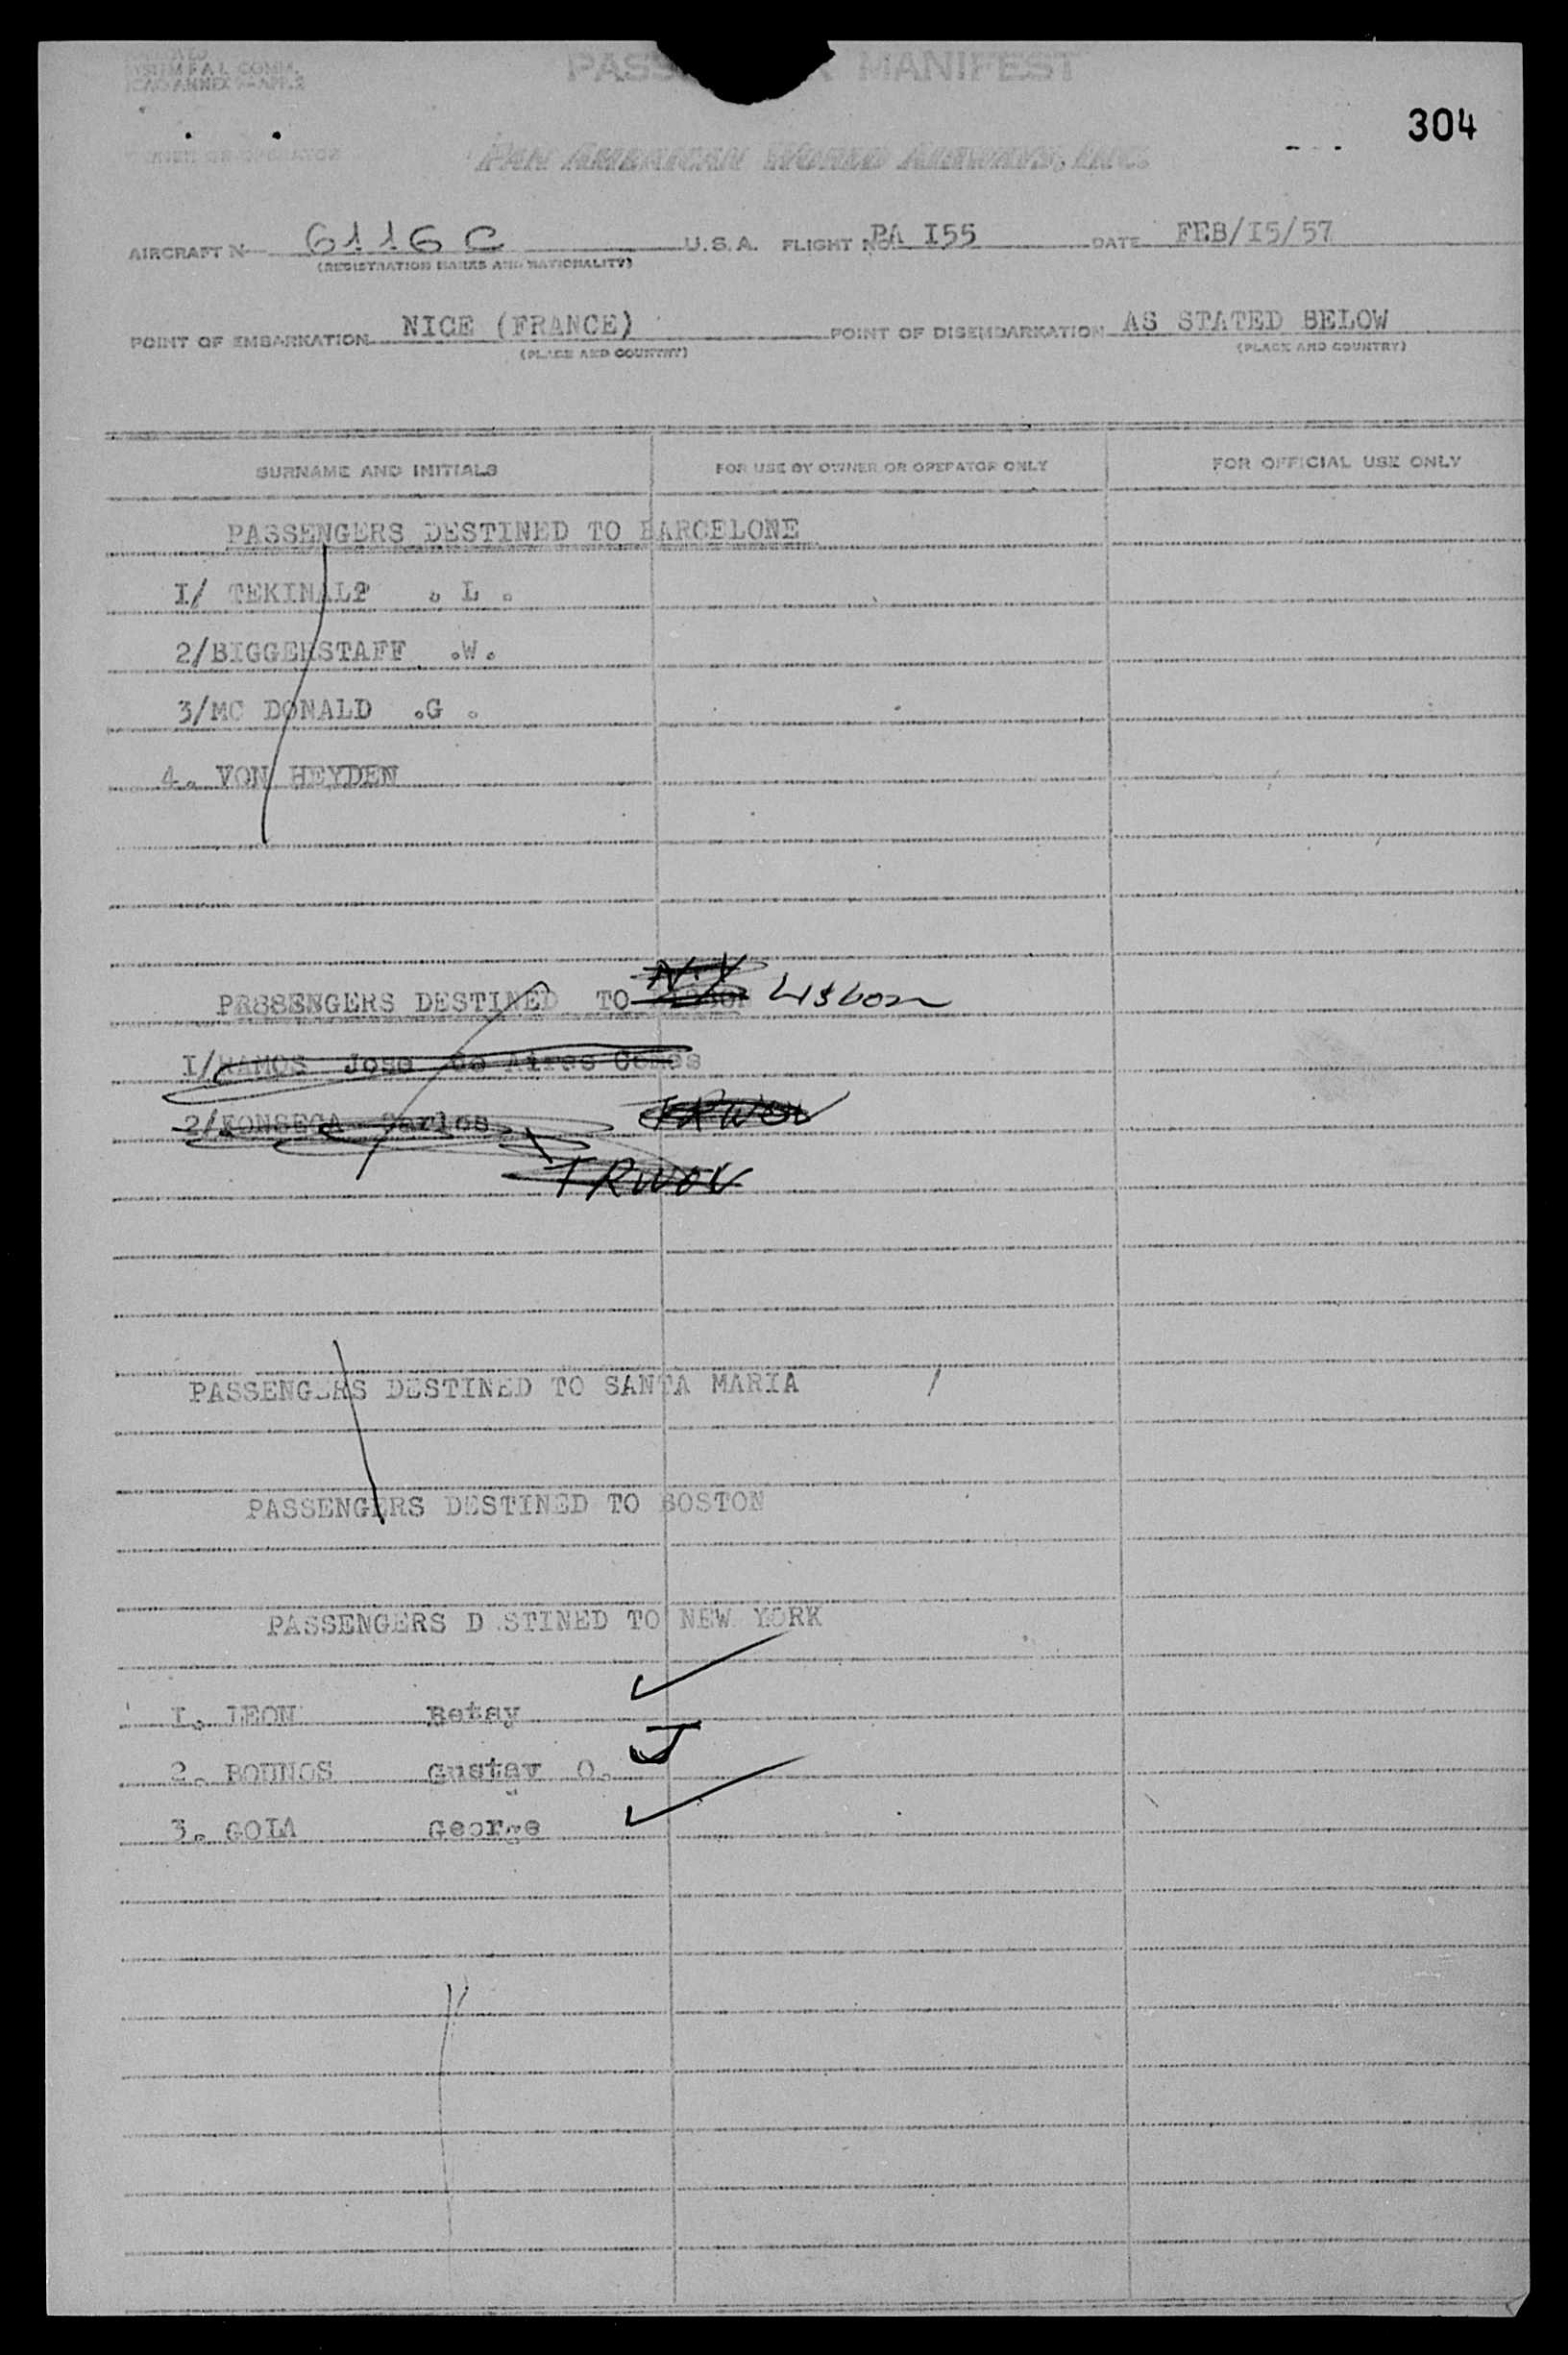 SYSTEM F A L COMM.
ICAO ANNEX 9-APP.3
PASS R MANIFEST
304
PAN AMERICAN WORLD AIRWAYS, INC.
AIRCRAFT N 6116 C U.S.A. FLIGHT NO. PA I55 DATE FEB/I5/57
(REGISTRATION MARKS AND NATIONALITY)
POINT OF EMBARKATION NICE (FRANCE) POINT OF DISEMBARKATION AS STATED BELOW
(PLACE AND COUNTRY) (PLACE AND COUNTRY)
SURNAME AND INITIALS FOR USE BY OWNER OR OPERATOR ONLY FOR OFFICIAL USE ONLY
PASSENGERS DESTINED TO BARCELONE
I/ TEKINALP . L .
2/BIGGERSTAFF .W.
3/MC DONALD .G .
4. VON HEYDEN
N.Y
PASSENGERS DESTINED TO Lisbon
I/RAMOS Jose de Aires Gomes
2/FONSECA Carlos
TRWOV
PASSENGERS DESTINED TO SANTA MARIA
PASSENGERS DESTINED TO BOSTON
PASSENGERS D STINED TO NEW YORK
I. LEON Betay
2. BOUNOS Gustav O.
3. GOLA George